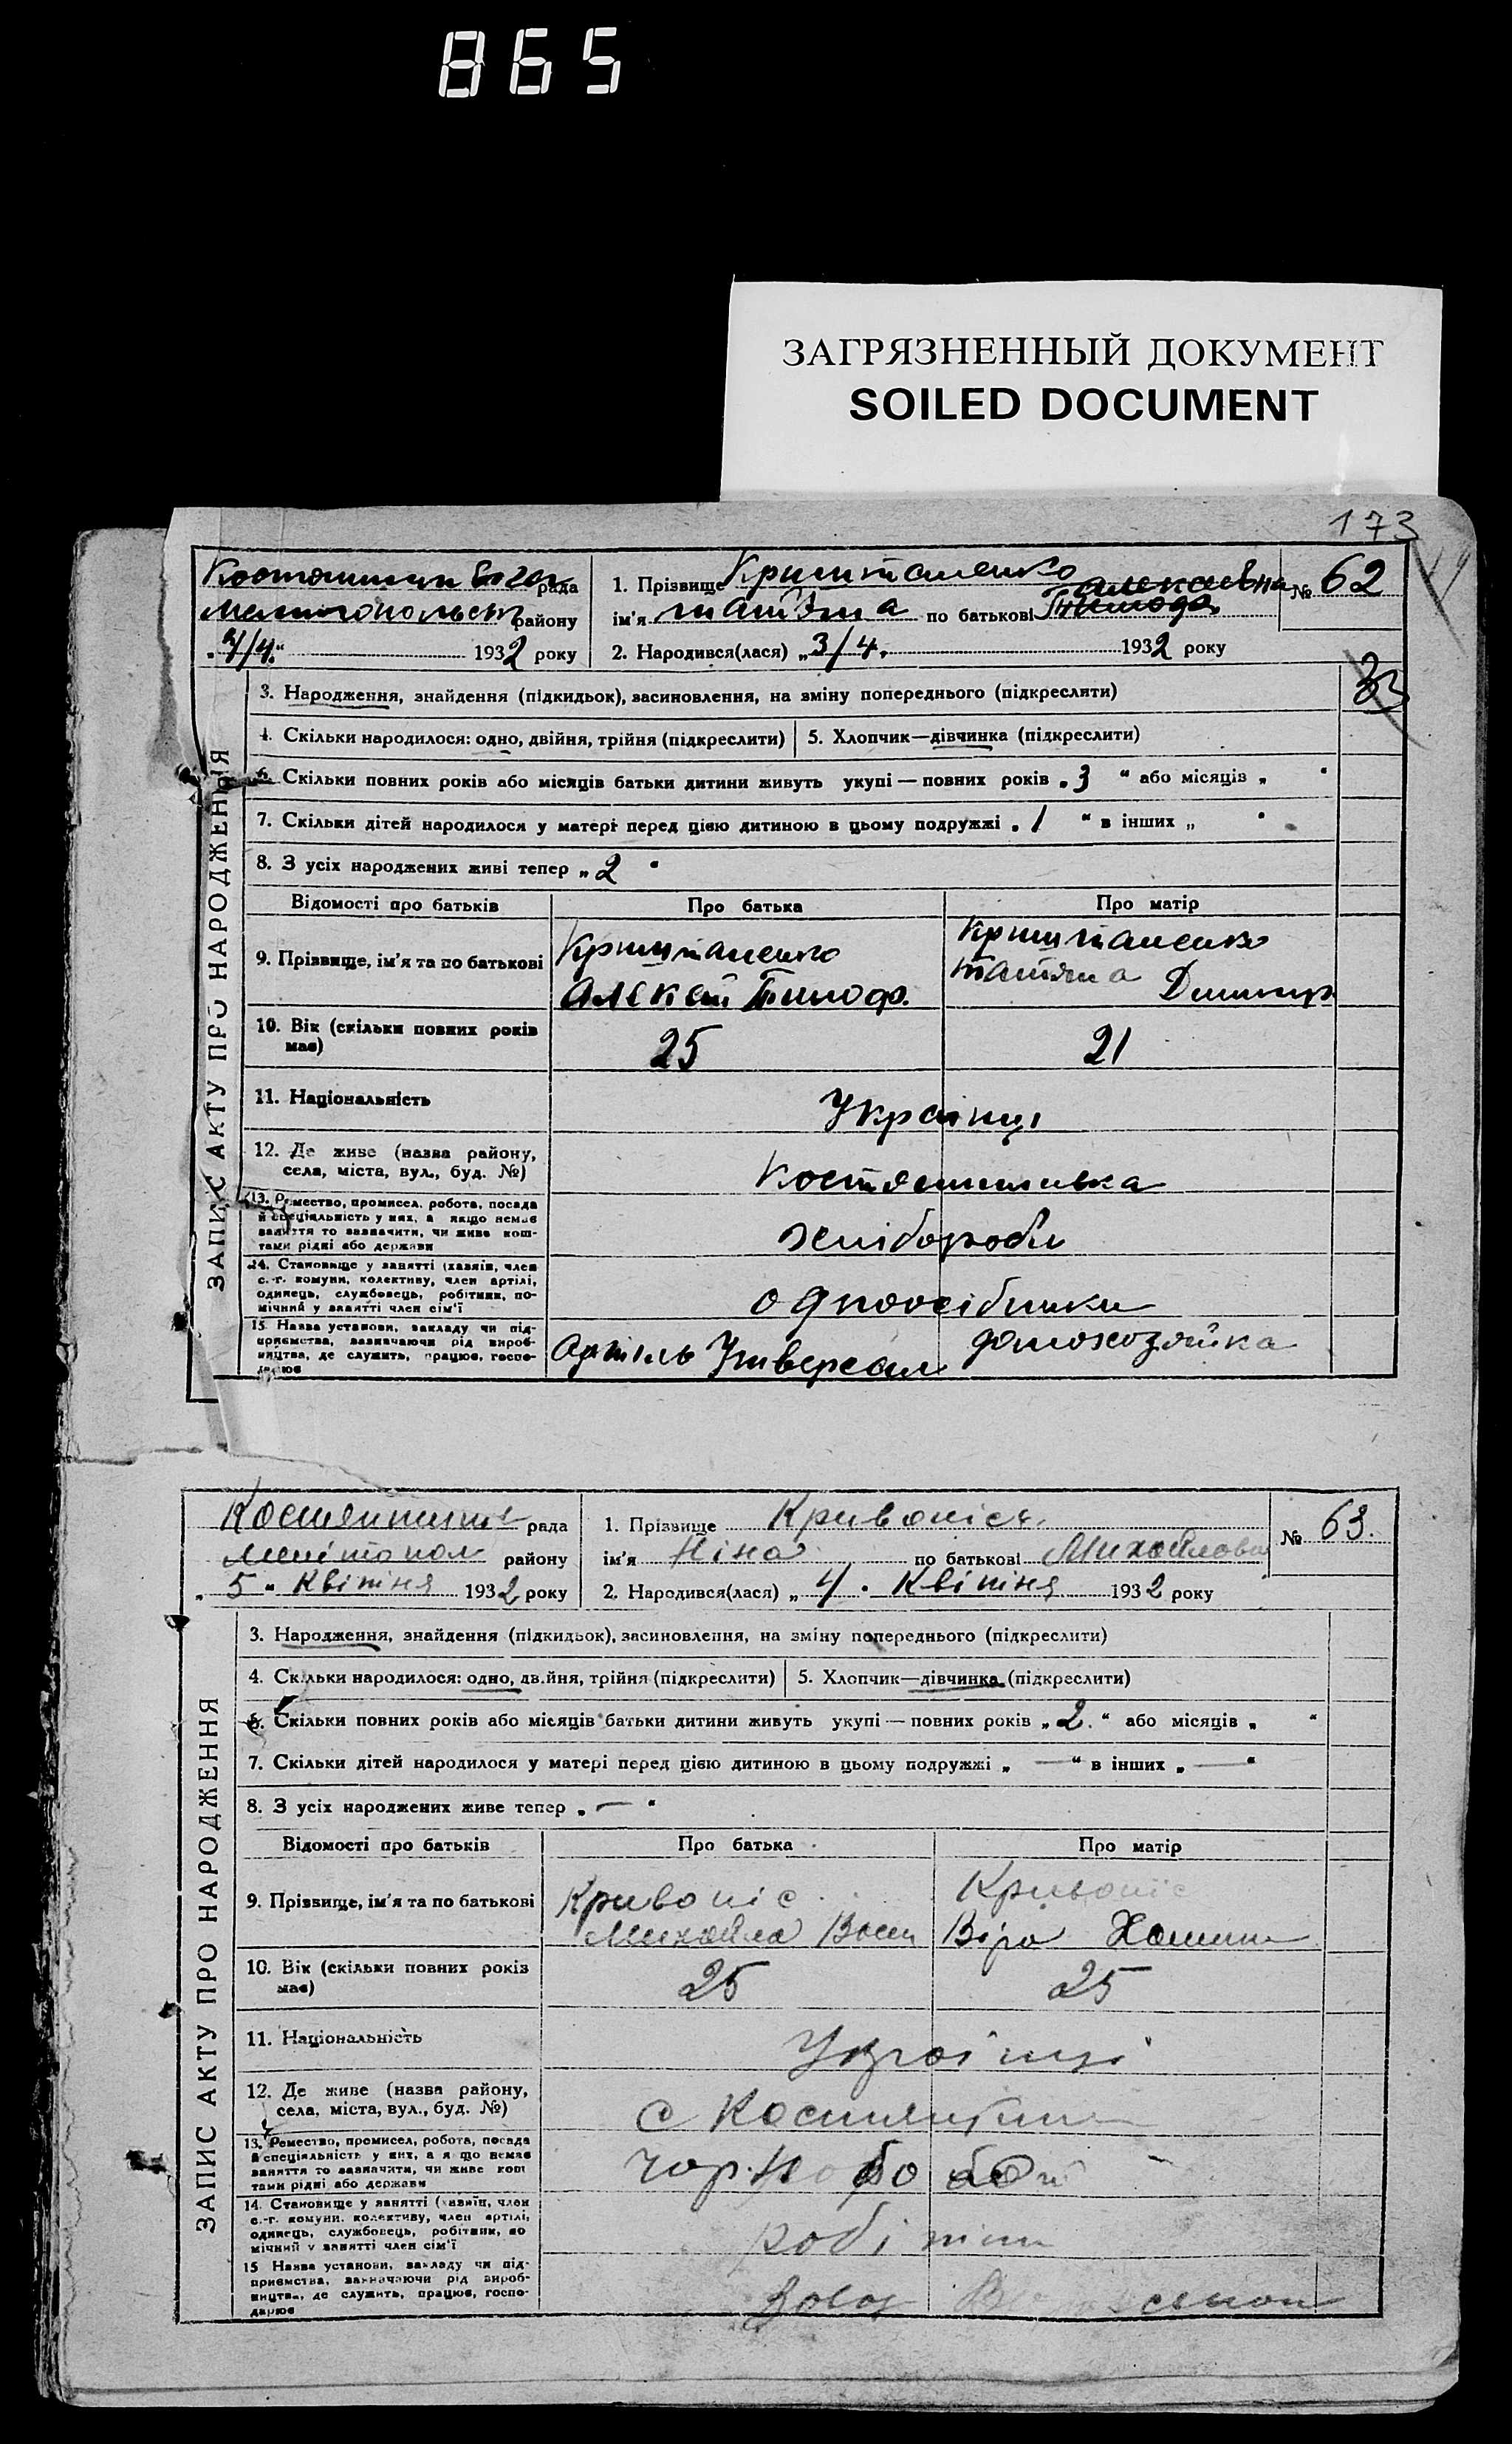 865
ЗАГРЯЗНЕННЫЙ ДОКУМЕНТ
SOILED DOCUMENT
173
рада
району
7/4 1932 року
1. Прізвище Криштаненко
ім'я по батькові Алексеевна
2. Народився(лася) „3/4. 1932 року
№ 62
3. Народження, знайдення (підкидьок), засиновлення, на зміну попереднього (підкреслити)
4. Скільки народилося: одно, двійня, трійня (підкреслити) 5. Хлопчик—дівчинка (підкреслити)
6. Скільки повних років або місяців батьки дитини живуть укупі — повних років „3 “ або місяців „ “
7. Скільки дітей народилося у матері перед цією дитиною в цьому подружжі „1 “ в інших „ “
8. З усіх народжених живі тепер „2 “
Відомості про батьків Про батька Про матір
9. Прізвище, ім'я та по батькові
Криштаненко
Алексей Тимоф.
Криштаненко
Татяна
10. Вік (скільки повних років має) 25 21
11. Національність Українці
12. Де живе (назва району,
села, міста, вул., буд. №)
13. Ремество, промисел, робота, посада
й спеціяльність у них, а якщо немає
заняття то зазначити, чи живе кош-
тами рідні або держави
хлібороби
14. Становище у занятті (хазяїн, член
с.-г. комуни, колективу, член артілі,
одинець, службовець, робітник, по-
мічний у занятті член сім'ї
одноосібники
15 Назва установи, закладу чи під-
приємства, зазначаючи рід вироб-
ництва, де служить, працює, госпо-
дарює
Артіль Універсал домохозяйка
ЗАПИС АКТУ ПРО НАРОДЖЕННЯ
рада
Мелітопол району
„5“ Квітня 1932 року
1. Прізвище Кривоніс
ім'я Ніна по батькові Михайловна
2. Народився(лася) „4. Квітня 1932 року
№ 63.
3. Народження, знайдення (підкидьок), засиновлення, на зміну попереднього (підкреслити)
4. Скільки народилося: одно, двійня, трійня (підкреслити) 5. Хлопчик—дівчинка (підкреслити)
6. Скільки повних років або місяців батьки дитини живуть укупі — повних років „2.“ або місяців „ “
7. Скільки дітей народилося у матері перед цією дитиною в цьому подружжі „ —“ в інших „ —“
8. З усіх народжених живе тепер „ — “
Відомості про батьків Про батька Про матір
9. Прізвище, ім'я та по батькові
Кривоніс
Михайло
Кривоніс
Віра
10. Вік (скільки повних років має) 25 25
11. Національність Українці
12. Де живе (назва району,
села, міста, вул., буд. №)
13. Ремество, промисел, робота, посада
й спеціяльність у них, а якщо немає
заняття то зазначити, чи живе кош
тами рідні або держави
14. Становище у занятті (хазяїн, член
с.-г. комуни, колективу, член артілі,
одинець, службовець, робітник, по
мічний у занятті член сім'ї
15 Назва установи, закладу чи під-
приємства, зазначаючи рід вироб-
ництва, де служить, працює, госпо-
дарює
ЗАПИС АКТУ ПРО НАРОДЖЕННЯ